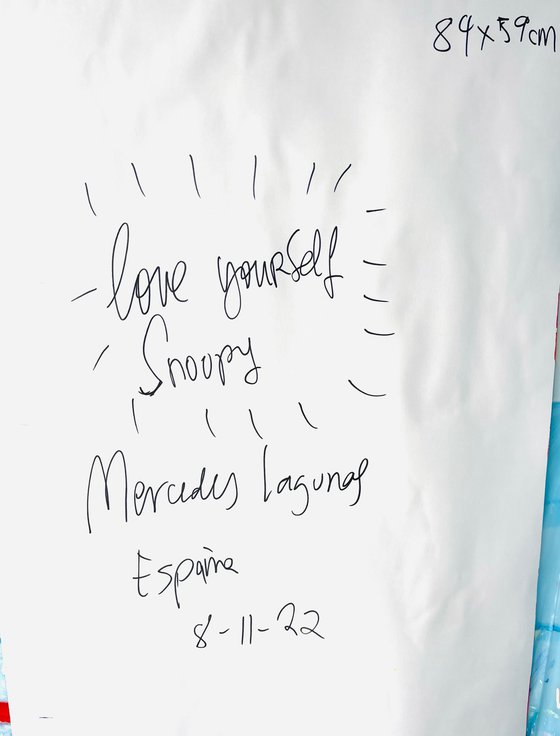 84x59cm
love yourself
Snoopy
Mercedes Lagunas
España
8-11-22